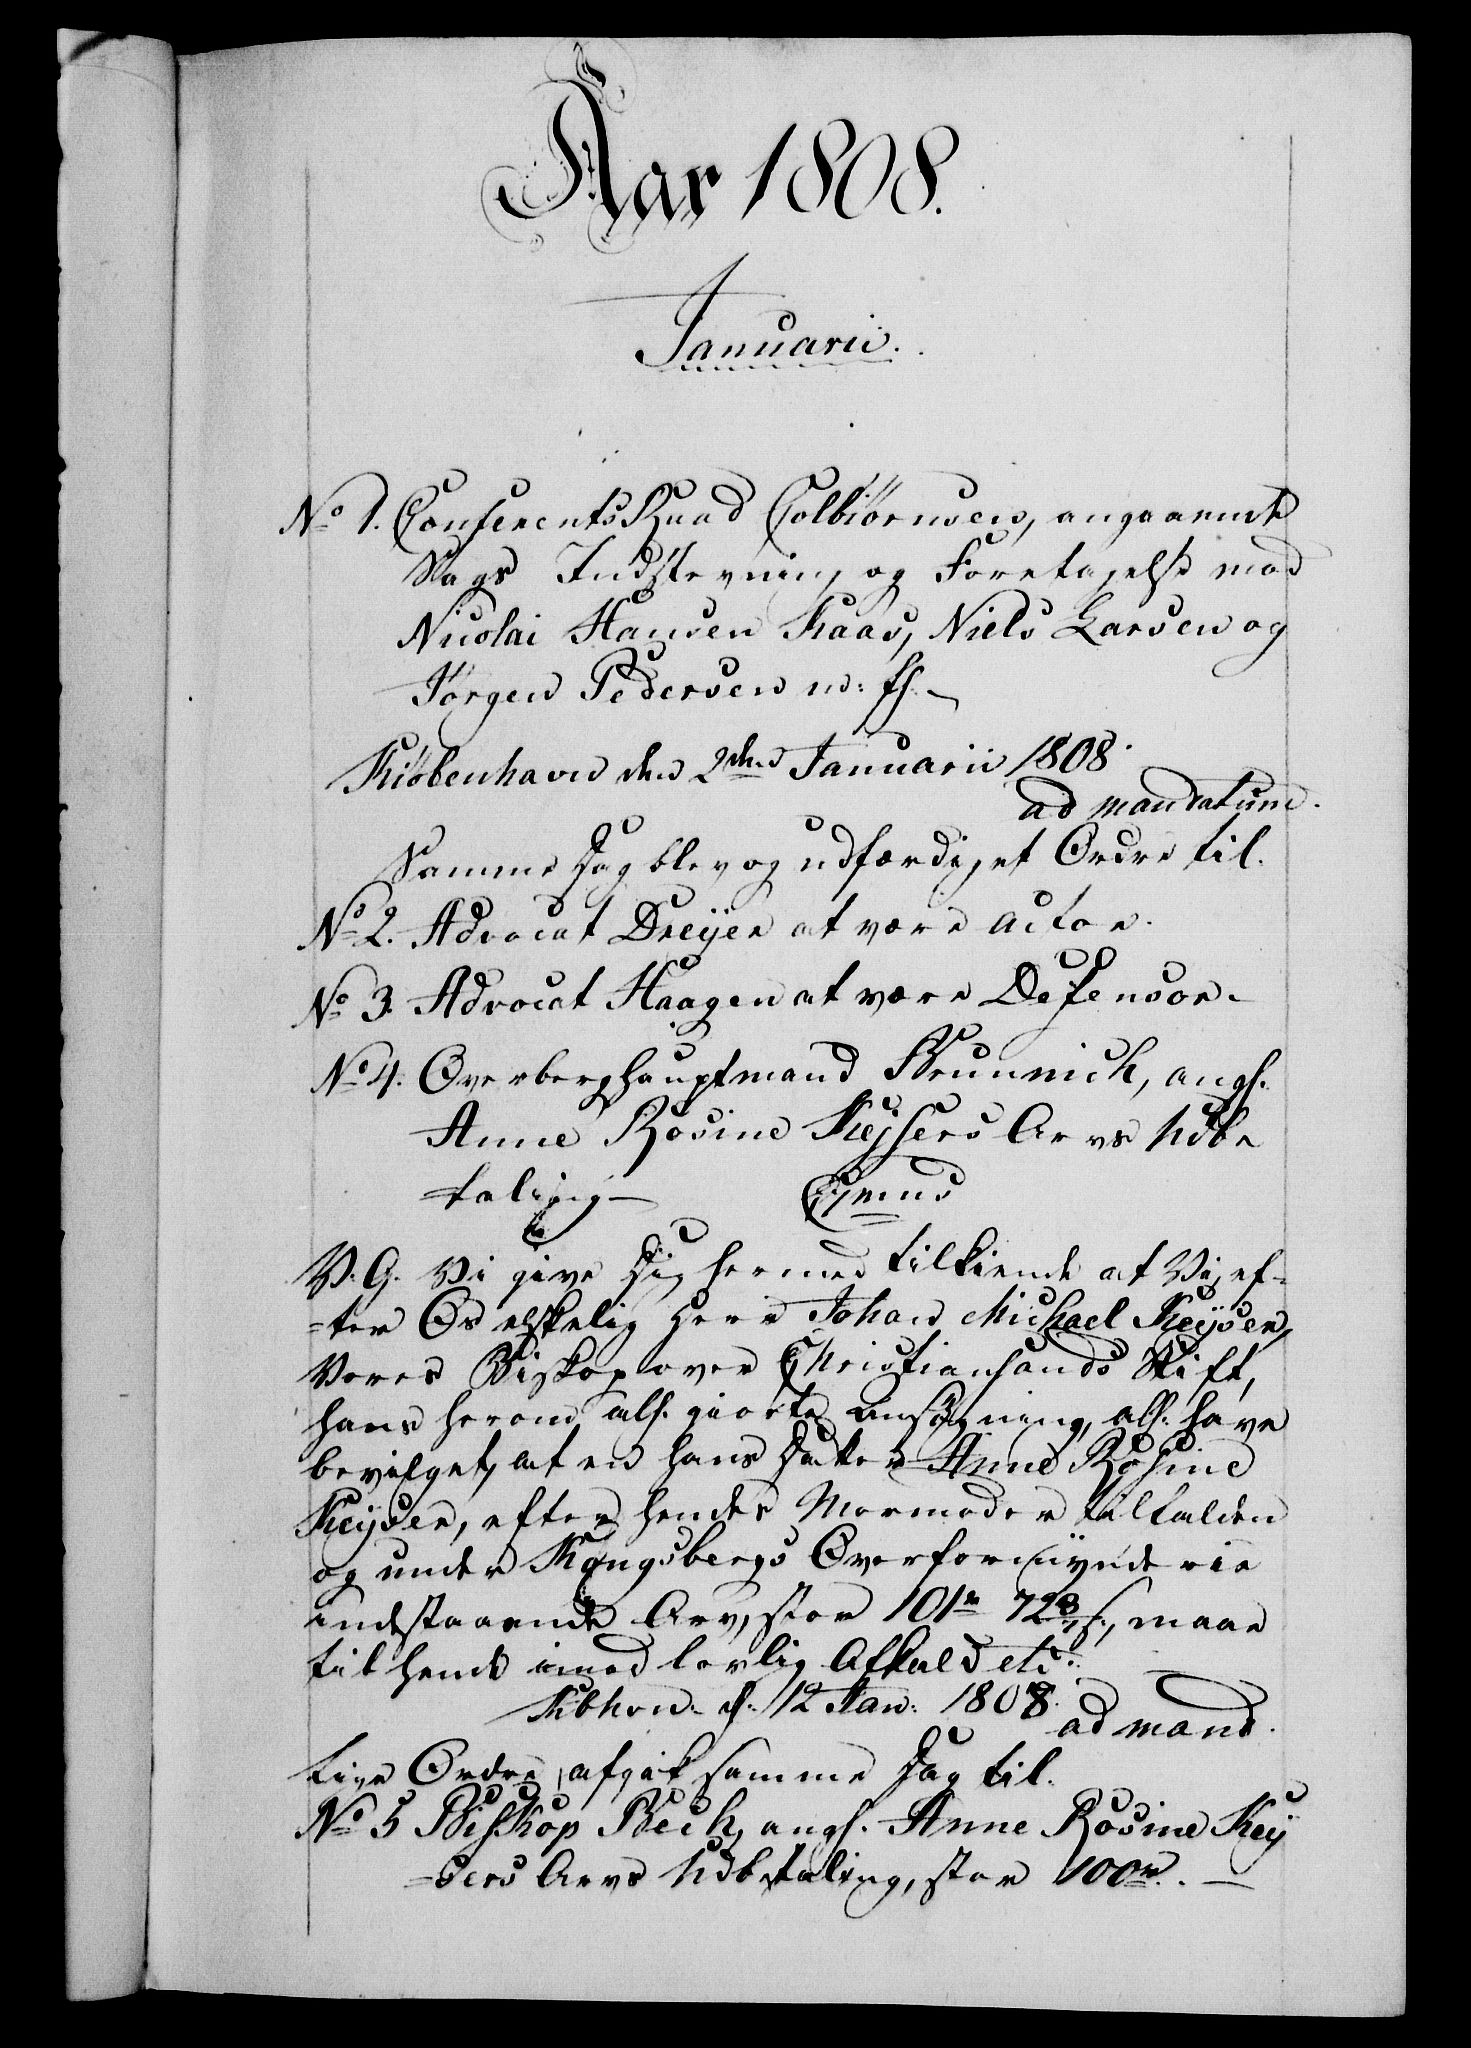 Aar 1808.
Januarii.
No 1. Conferents Raad Colbiørnsen, angaaende
Sags Indstevning og Foretagelse mod
Nicolai Hansen Kaas, Niels Larsen og
Jørgen Pedersen m: fl.
Kiøbenhavn den 2den Januarii 1808.
ad mandatum.
Samme Dag blev og udfærdiget Ordre til.
No 2. Advocat Dreijer at være Actor.
No 3. Advocat Haagen at være Defensor.
No 4. Overberghauptmand Brunnich, angl.
Anne Rosine Keysers Arvs Udbe
taling
V. G. Vi give Dig hermed tilkiende at Vi, ef=
=ter Os elskelig Herr Johan Michael Keyser,
Vores Biskop over Christiansands Stift,
hans herom all. giorte Ansøgning, all. have
bevilget, at en hans Datter Anne Rosine
Keyser, efter hendes Mormoder tilfalden
og under Kongsbergs Overformynderie
indestaaende Arv, stor 101 r 72 3/7 s., maae
til hende imod lovlig Afkald etc.
Kbhvn. d. 12 Jan: 1808.
ad mand.
Lige Ordre afgik samme Dag til.
No 5 Biskop Bech, angl. Anne Rosine Key
=sers Arvs Udbetaling, stor 100 r.